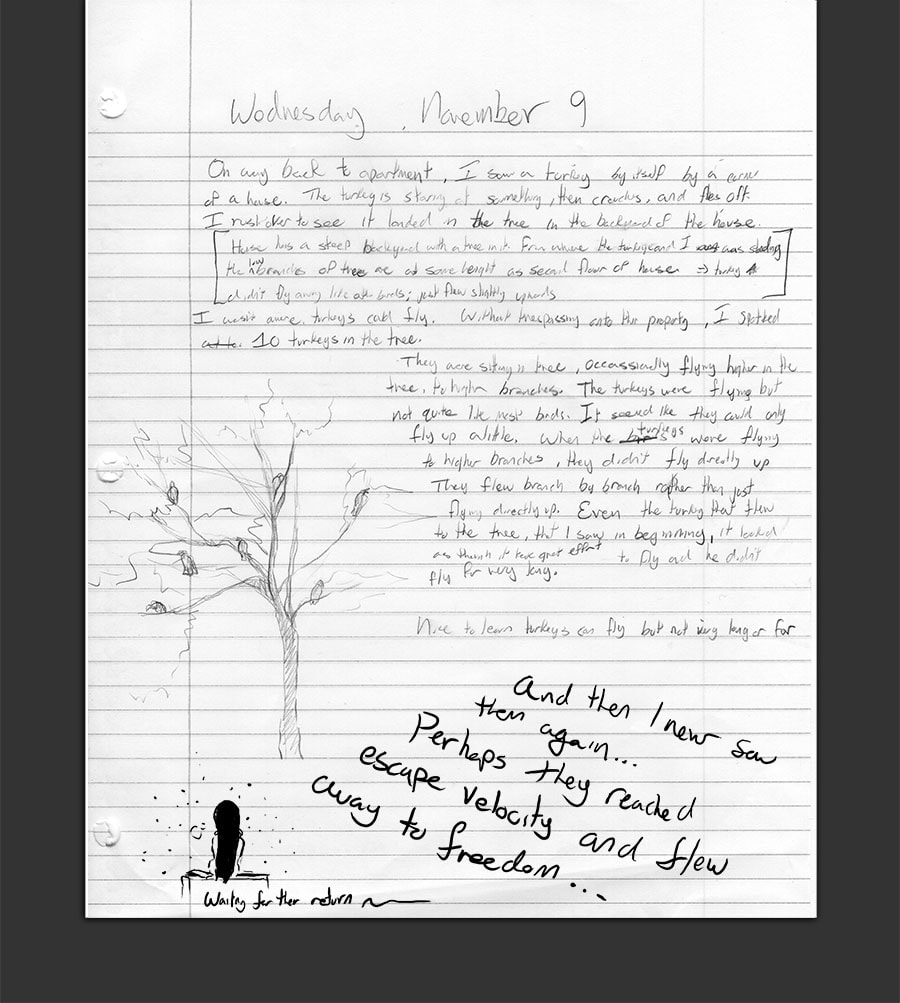 Wodnesday, November 9
On way back to apartment, I saw a turkey by itself by a corner
of a house. The turkey is staring at something, then crouches, and flies off.
I rush over to see it landed in the tree in the backyard of the house.
House has a steep backyard with a tree in it. From where the turkey and I was standing
the low branches of tree are at same height as second floor of house → turkey
didn't fly away like other birds; just flew slightly upwards
I wasn't aware turkeys could fly. Without trespassing onto the property, I spotted
10 turkeys in the tree.
They were sitting in tree, occassionally flying higher in the
tree, to higher branches. The turkeys were flying but
not quite like most birds. It seemed like they could only
fly up a little. When the turkeys were flying
to higher branches, they didn't fly directly up
They flew branch by branch rather than just
flying directly up. Even the turkey that flew
to the tree, that I saw in beginning, it looked
as though it took great effort to fly and he didn't
fly for very long.
Nice to learn turkeys can fly but not very long or far
And then I never saw
them again...
Perhaps they reached
escape velocity and flew
away to freedom...
Waiting for their return